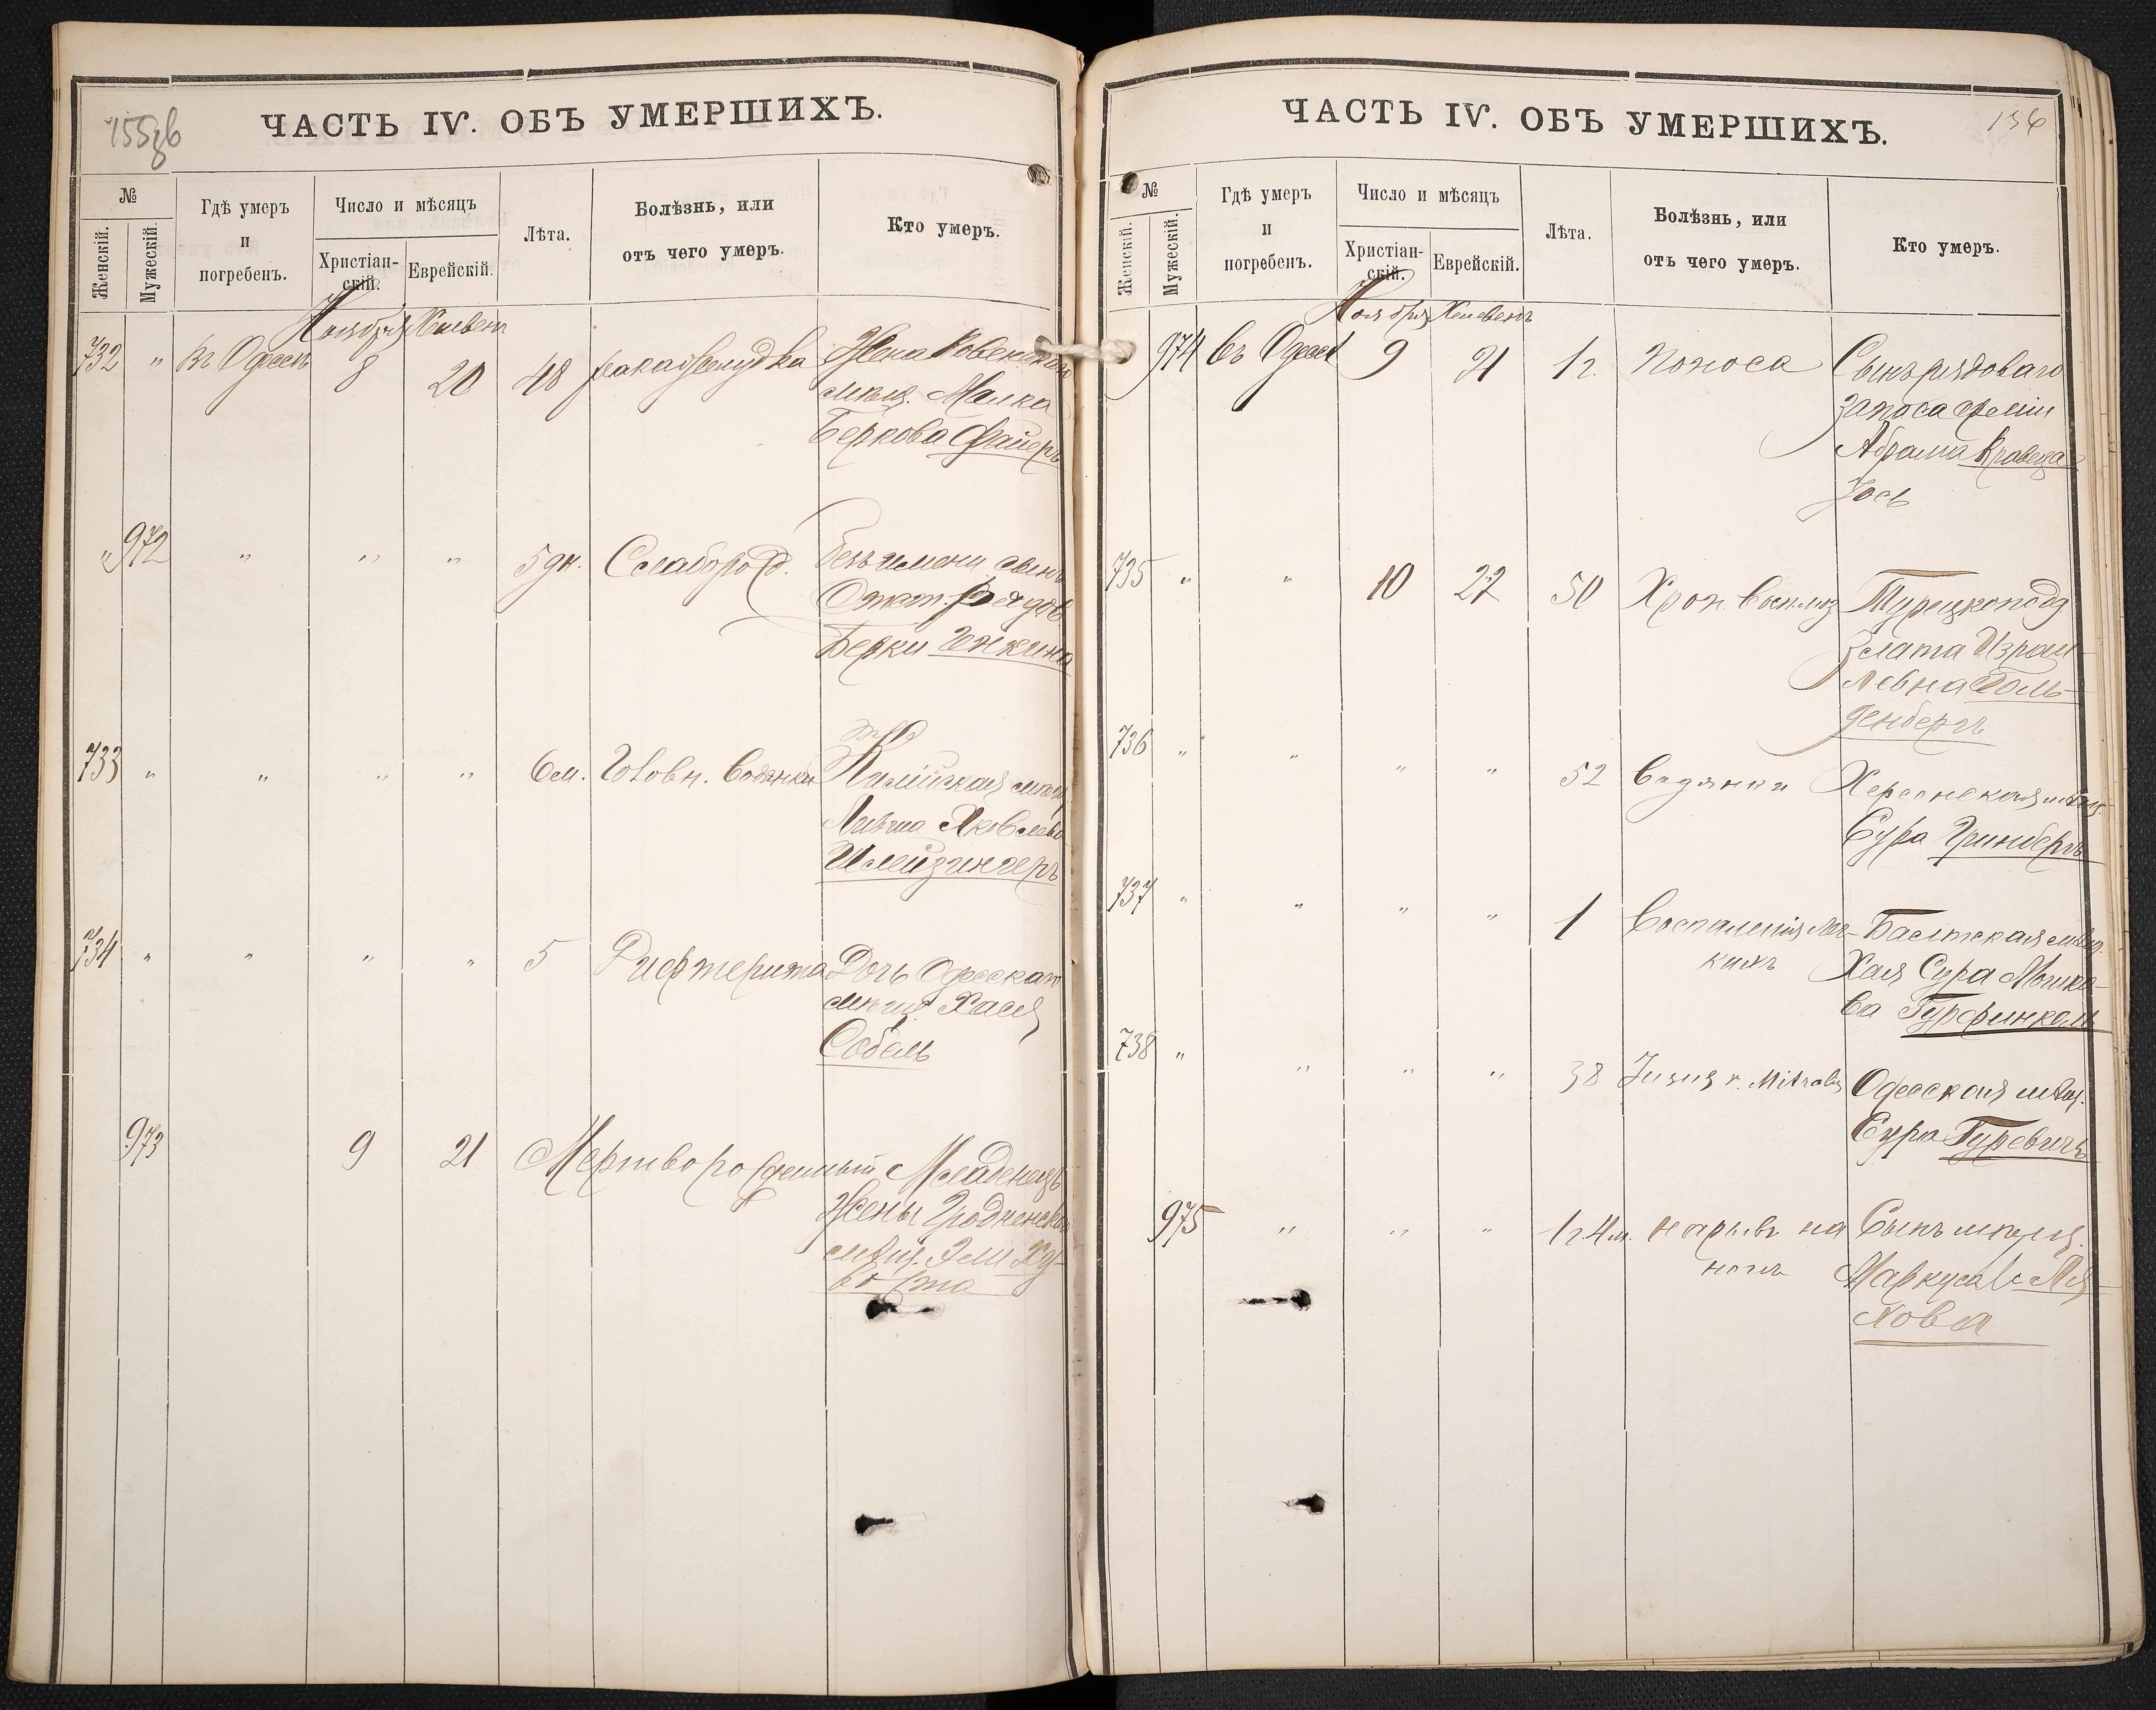 155об
ЧАСТЬ IV. ОБЪ УМЕРШИХЪ.
№
Женскій.
Мужескій.
Гдѣ умеръ
и
погребенъ.
Число и мѣсяцъ
Христіан-
скій.
Еврейскій.
Лѣта.
Болѣзнь, или
отъ чего умеръ.
Кто умеръ.
Ноября Хисвенъ
732 " Въ Одессѣ 8 20 48 рака желудка Жена Ковенскаго
мѣщ. Малка
Беркова Файеръ
" 972 " " " 5 дн. Слаборожд. Безъ имени сынъ
Отст. рядов.
Берки
733 " " " " 6 м. Головн. водянки Килійская мѣщ.
Яковлева
Шлейзингеръ
734 " " " " 5 Дифтерита Дочь Одесскаго
мѣщ. Хася
Собель
973 9 21 Мертворожденный Младенецъ
Жены Гродненскаго
мѣщ.
156
ЧАСТЬ IV. ОБЪ УМЕРШИХЪ.
№
Женскій.
Мужескій.
Гдѣ умеръ
и
погребенъ.
Число и мѣсяцъ
Христіан-
скій.
Еврейскій.
Лѣта.
Болѣзнь, или
отъ чего умеръ.
Кто умеръ.
Ноября Хисвенъ
974 Въ Одессѣ 9 21 1 г. Поноса Сынъ рядоваго
запаса арміи
Абрама Кравеца
Іось
735 " " 10 22 50 Хрон. восп. Турецкопод.
Злата Израи-
левна Голь-
денбергъ
736 " " " " 52 Водянки Херсонская мѣщ.
Сура Гринбергъ
737 " " " " 1 Воспаленія лег- Балтская мѣщ.
кихъ Хая Сура Мошко-
ва Гурфинкель
738 " " " " 38 Одесская мѣщ.
Сура Гуревичъ
975 " " " 1 г. 4 м. Нарывъ на Сынъ мѣщ.
ногѣ Маркуса Ля-
хова